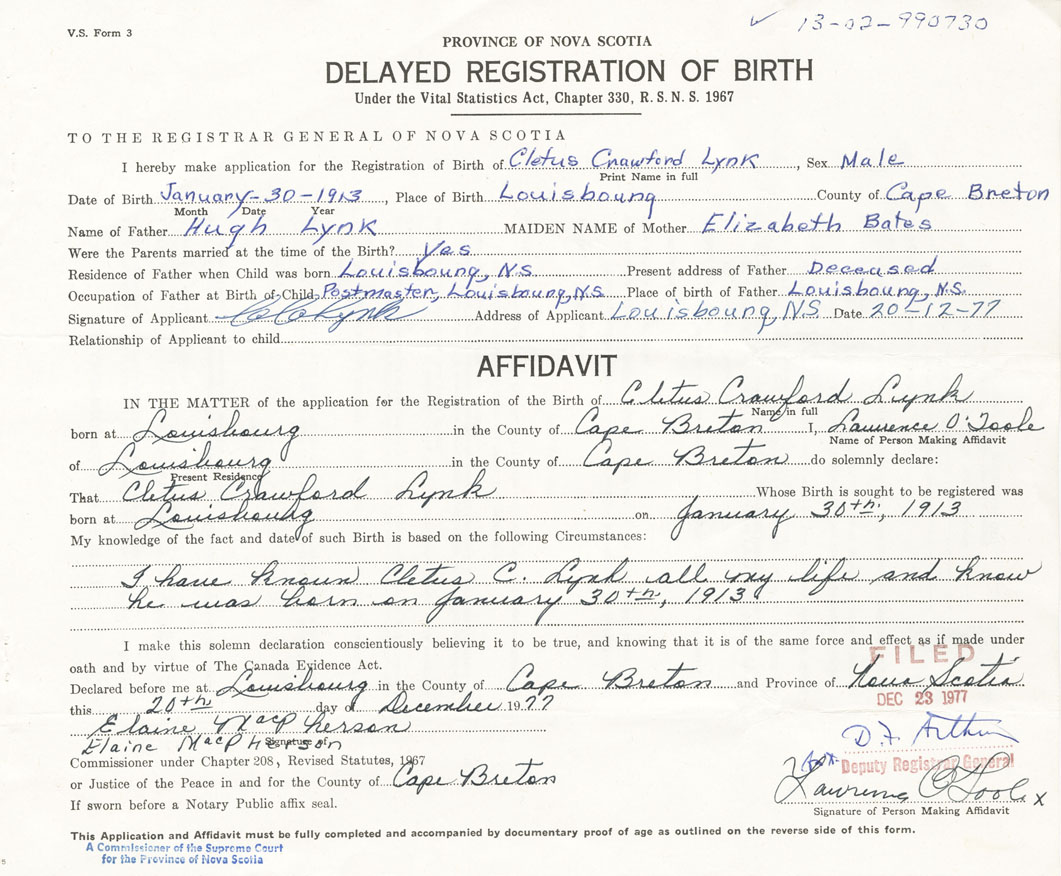 V.S. Form 3
13-02-990730
PROVINCE OF NOVA SCOTIA
DELAYED REGISTRATION OF BIRTH
Under the Vital Statistics Act, Chapter 330, R.S.N.S. 1967
TO THE REGISTRAR GENERAL OF NOVA SCOTIA
I hereby make application for the Registration of Birth of Cletus Crawford Lynk, Sex Male
Print Name in full
Date of Birth January-30-1913, Place of Birth Louisbourg County of Cape Breton
Month Date Year
Name of Father Hugh Lynk, MAIDEN NAME of Mother Elizabeth Bates
Were the Parents married at the time of the Birth? Yes
Residence of Father when Child was born Louisbourg, NS Present address of Father Deceased
Occupation of Father at Birth of Child Postmaster, Louisbourg, NS Place of birth of Father Louisbourg, N.S.
Signature of Applicant C C Lynk Address of Applicant Louisbourg, NS Date 20-12-77
Relationship of Applicant to child
AFFIDAVIT
IN THE MATTER of the application for the Registration of the Birth of Cletus Crawford Lynk
Name in full
born at Louisbourg in the County of Cape Breton I, Lawrence O'Toole
Name of Person Making Affidavit
of Louisbourg in the County of Cape Breton do solemnly declare:
Present Residence
That Cletus Crawford Lynk Whose Birth is sought to be registered was
born at Louisbourg on January 30th, 1913
My knowledge of the fact and date of such Birth is based on the following Circumstances:
I have known Cletus C. Lynk all my life and know
he was born on January 30th, 1913
I make this solemn declaration conscientiously believing it to be true, and knowing that it is of the same force and effect as if made under
oath and by virtue of The Canada Evidence Act.
FILED
Declared before me at Louisbourg in the County of Cape Breton and Province of Nova Scotia.
DEC 23 1977
this 20th day of December 1977
Elaine MacPherson
Elaine MacPherson
Signature of
D. F. Arthur
Commissioner under Chapter 208, Revised Statutes, 1967
for Deputy Registrar General
or Justice of the Peace in and for the County of Cape Breton
Lawrence O'Toole x
If sworn before a Notary Public affix seal.
Signature of Person Making Affidavit
This Application and Affidavit must be fully completed and accompanied by documentary proof of age as outlined on the reverse side of this form.
A Commissioner of the Supreme Court
for the Province of Nova Scotia